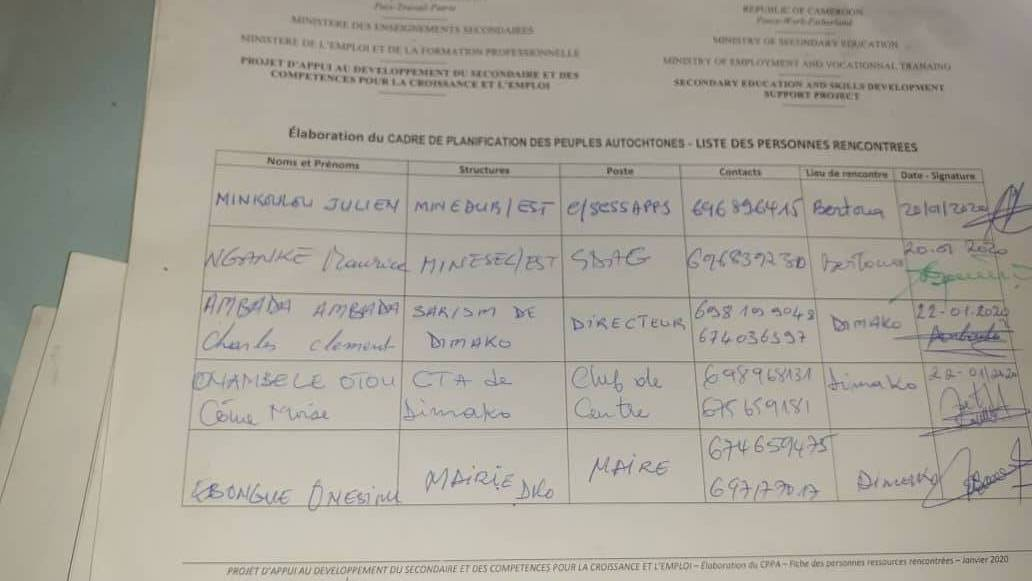 Paix-Travail-Patrie
MINISTERE DES ENSEIGNEMENTS SECONDAIRES
MINISTERE DE L'EMPLOI ET DE LA FORMATION PROFESSIONNELLE
PROJET D'APPUI AU DEVELOPPEMENT DU SECONDAIRE ET DES
COMPETENCES POUR LA CROISSANCE ET L'EMPLOI
REPUBLIC OF CAMEROON
Peace-Work-Fatherland
MINISTRY OF SECONDARY EDUCATION
MINISTRY OF EMPLOYMENT AND VOCATIONNAL TRAINING
SECONDARY EDUCATION AND SKILLS DEVELOPMENT
SUPPORT PROJECT
Élaboration du CADRE DE PLANIFICATION DES PEUPLES AUTOCHTONES - LISTE DES PERSONNES RENCONTREES
Noms et Prénoms Structures Poste Contacts Lieu de rencontre Date - Signature
MINKOULOU JULIEN MINEDUB/EST C/SESSAPPS 696896415 Bertoua 20/01/2020
NGANKE Maurice MINESEC/EST SDAG 696839230 Bertoua 20.01 2020
AMBADA AMBADA SARISM DE DIRECTEUR 674036597 DIMAKO 22-01.2020
Charles clement DIMAKO
OTOU CTA de Chef de 698968131 Dimako 22-01/2020
Côme Moise Dimako Centre 675659181
ONESIME MAIRIE DKO MAIRE 674659475 Dimako
PROJET D'APPUI AU DEVELOPPEMENT DU SECONDAIRE ET DES COMPETENCES POUR LA CROISSANCE ET L'EMPLOI – Élaboration du CPPA – Fiche des personnes ressources rencontrées – Janvier 2020